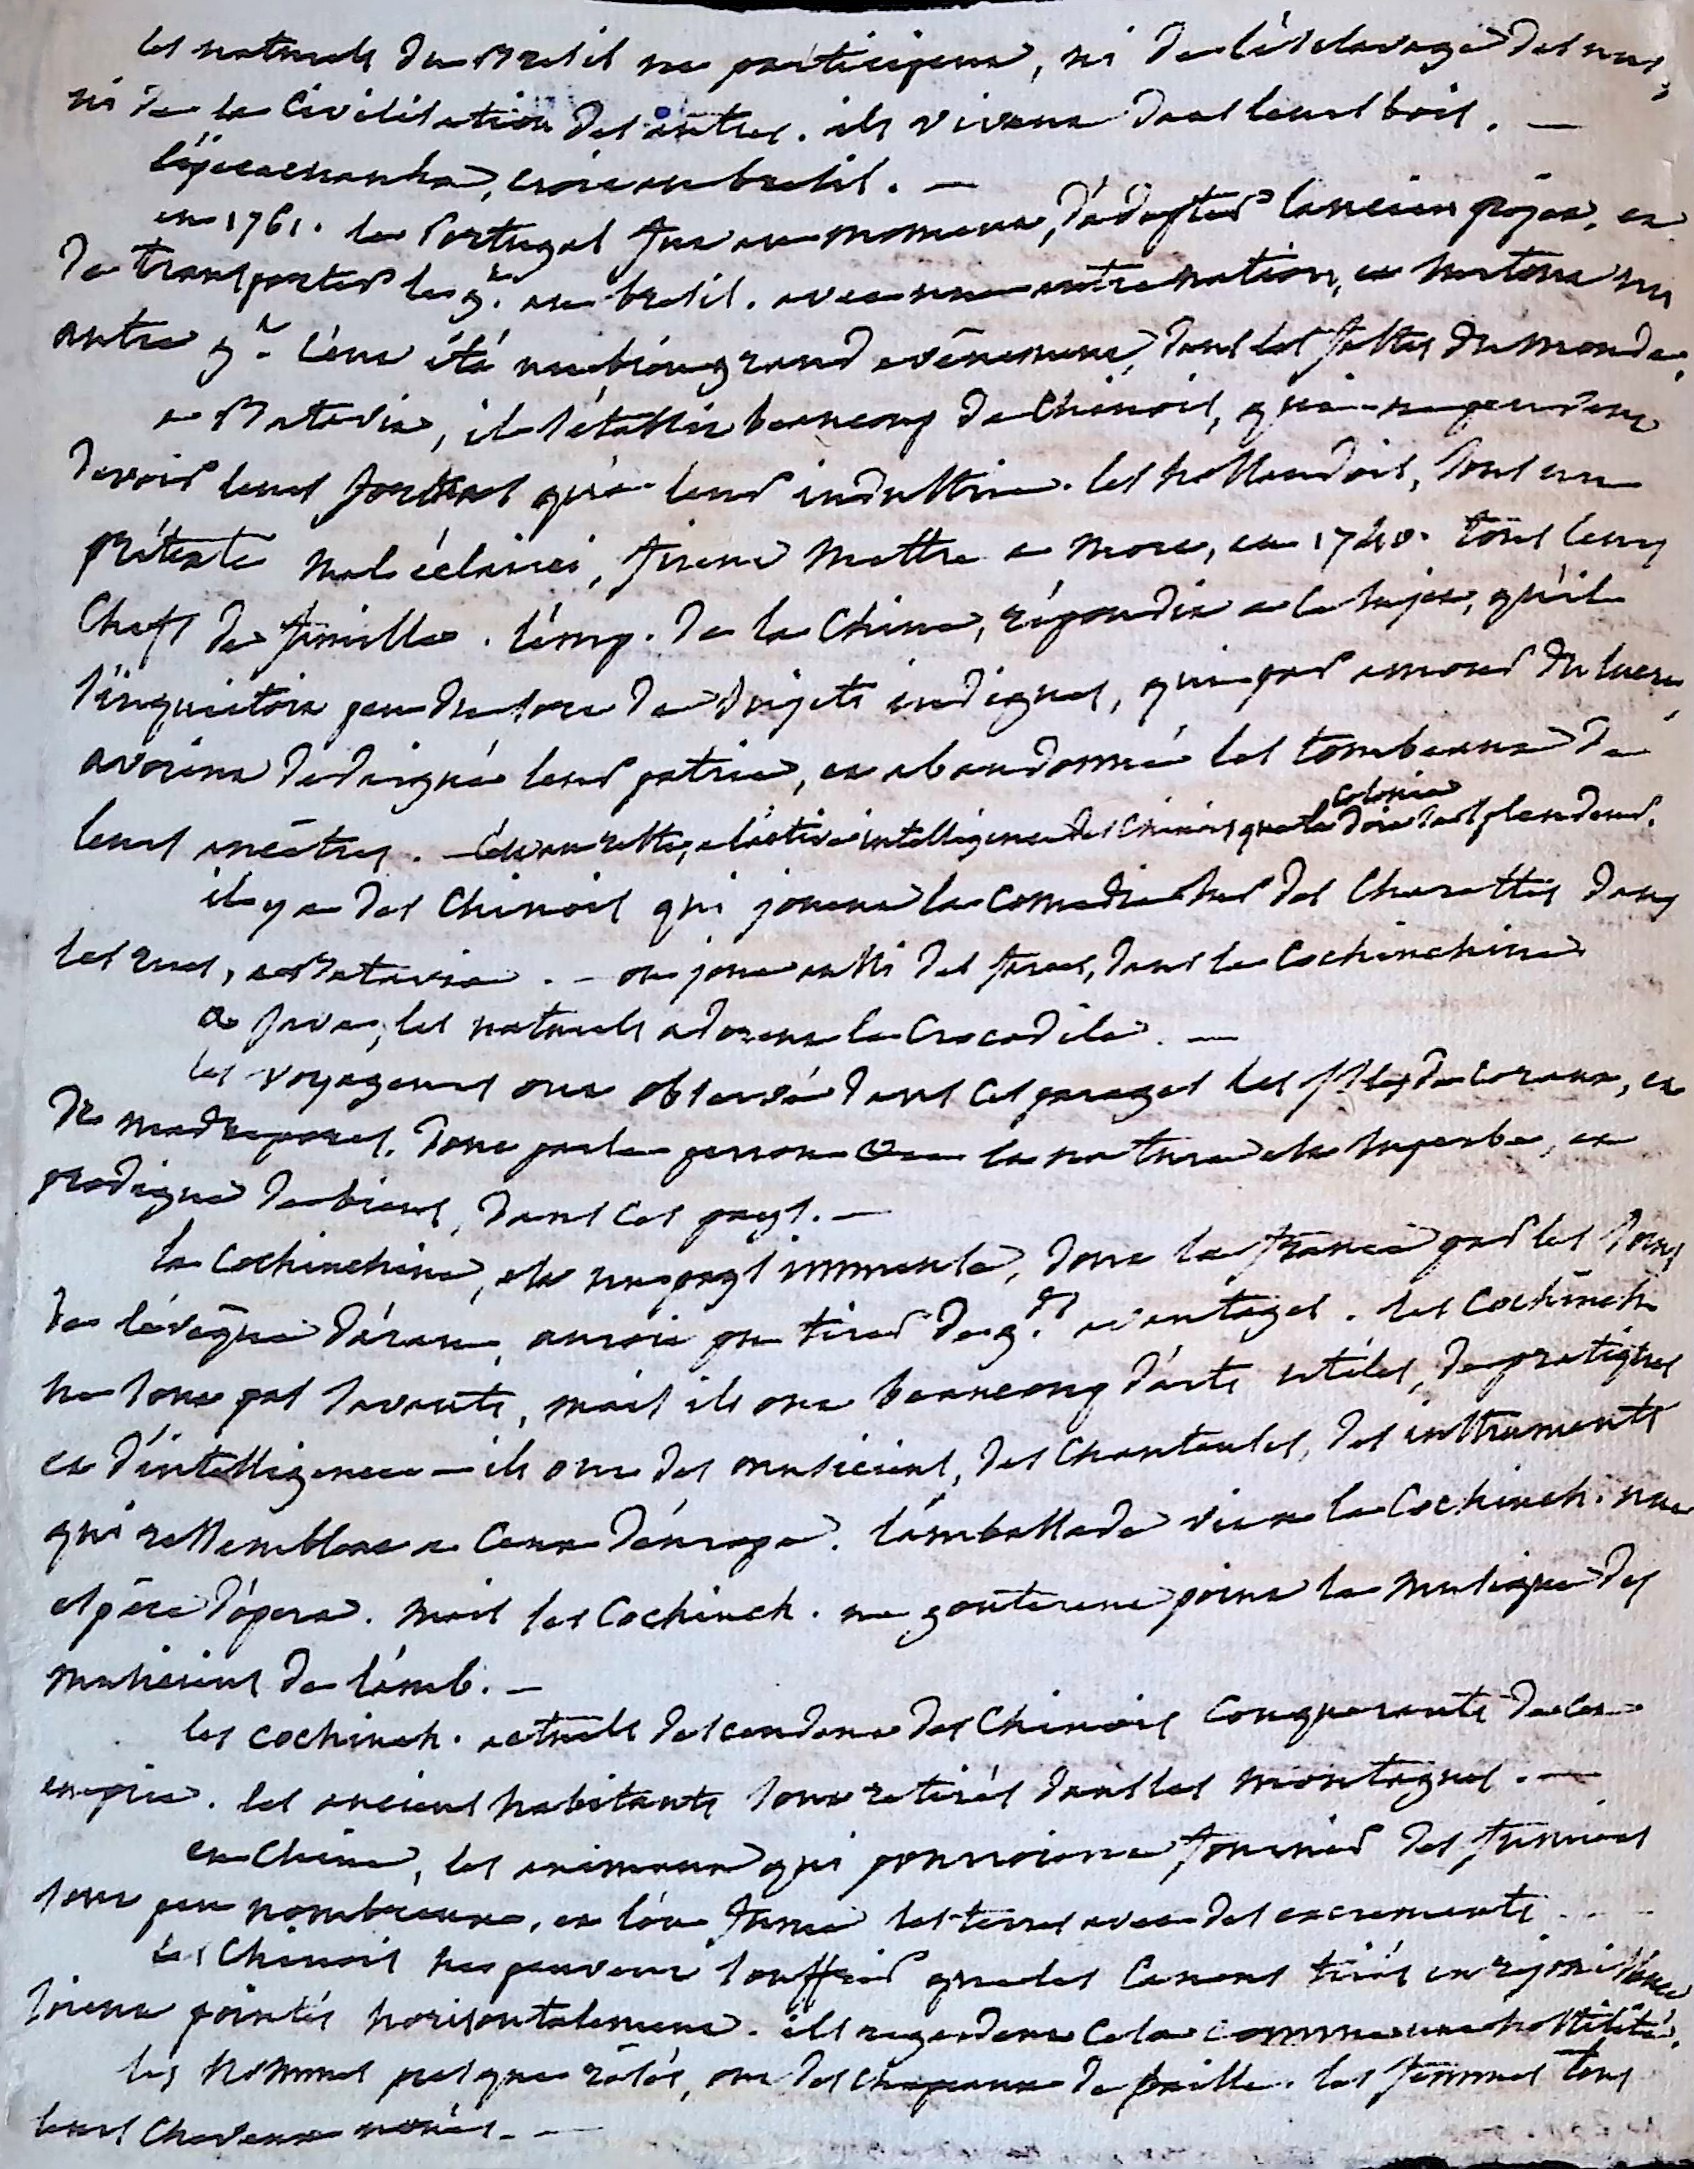 les naturels du Bresil ne participent, ni de l'ésclavage des uns,
ni de la Civilisation des autres. ils vivent dans leurs bois. —
l'ipecacuanha, croit au bresil. —
en 1761. le Portugal fut au moment, d'adopter l'ancien projet, et
de transporter le g.nt au bresil. avec une autre nation, et surtout un
autre g.t c'eut été un bien grand evénement, dans les fastes du monde.
a Batavia, il s'établit beaucoup de Chinois, qui ne peuvent
devoir leurs fortunes qu'à leur industrie. les hollandois, sous un
prétexte mal éclairci, firent mettre a mort, en 1740. tous leurs
Chefs de famille. l'emp. de la Chine, répondit a ce sujet, qu'il
s'inquiétoit peu du sort de sujets indignes, qui par amour du lucre,
avoient dedaigné leur patrie, et abandonné les tombeaux de
leurs ancêtres. — C'est au reste, a l'active intelligence des Chinois que la colonie doit sa splendeur.
il y a des Chinois qui jouent la comedie sur des Charettes dans
les rues, a Batavia. — on joue aussi des farces, dans la Cochinchine
a Java, les naturels adorent le Crocodile. —
les voyageurs ont observé dans ces parages les isles de coraux, et
de madrepores. dont parle peron la nature est superbe, et
prodigue de biens, dans ces pays. —
la Cochinchine, est un pays immense, dont la france par les soins
de l'évêque d'áran, auroit pu tirer de g.ds avantages. les Cochinch.
ne sont pas savants, mais ils ont beaucoup d'arts utiles, de pratiques
et d'intelligence — ils ont des musiciens, des chanteuses, des instruments
qui ressemblent a Ceux d'éurope. l'ambassade vit a la Cochinch. une
espèce d'ópera. mais les Cochinch. ne gouterent point la musique des
musiciens de l'amb. —
les cochinch. actuels descendent des Chinois conquerants de cet
empire. les anciens habitants sont retirés dans les montagnes. —
en Chine, les animaux qui pourroient fournir des fumiers
sont peu nombreux, et l'on fume les terres avec des excrements
les Chinois ne peuvent souffrir que les Canons tirés en rejouissance
soient pointés horisontalement. ils regardent cela comme une hostilité.
les hommes presque rasés, ont des chapeaux de paille. les femmes tous
leurs Cheveux noués. —